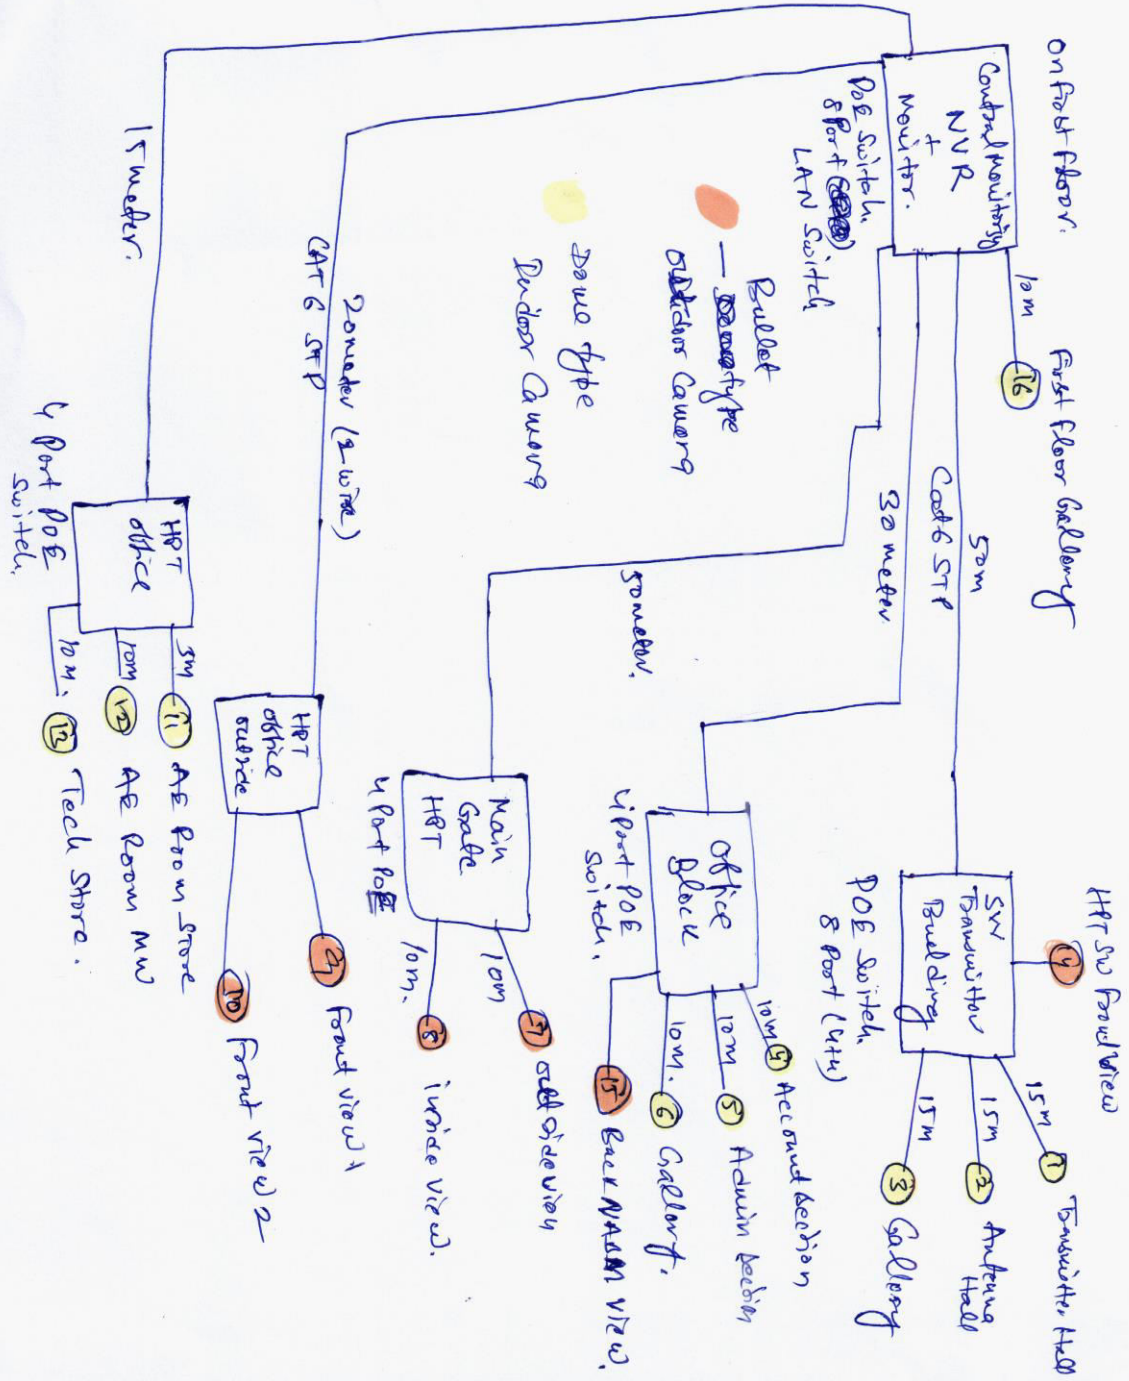 on first floor.
Central monitoring
NVR
+
Monitor.
POE Switch.
8 Port
LAN Switch
10m
16
First floor Gallery
50m
Cat 6 STP
30 meter
50 meter.
20 meter (2 wire)
CAT 6 STP
15 meter.
Bullet
— type
outdoor Camera
Dome type
Indoor Camera
SW
Transmitter
Building
POE Switch.
8 Port (4+4)
14
HPT SW Front View
15m
1
Transmitter Hall
15m
2
Antenna
Hall
15m
3
Gallery
Office
Block
4 Port POE
Switch.
10m
4
Account Section
10m
5
Admin Section
10m.
6
Gallery.
15
Back NABM view.
Main
Gate
HPT
4 Port POE
10m
7
outside view
10m.
8
inside view.
HPT
office
outside
9
Front view 1
10
Front view 2
HPT
office
4 Port POE
Switch.
3m
11
AE Room Store
10m
12
AE Room MW
10m.
13
Tech Store.